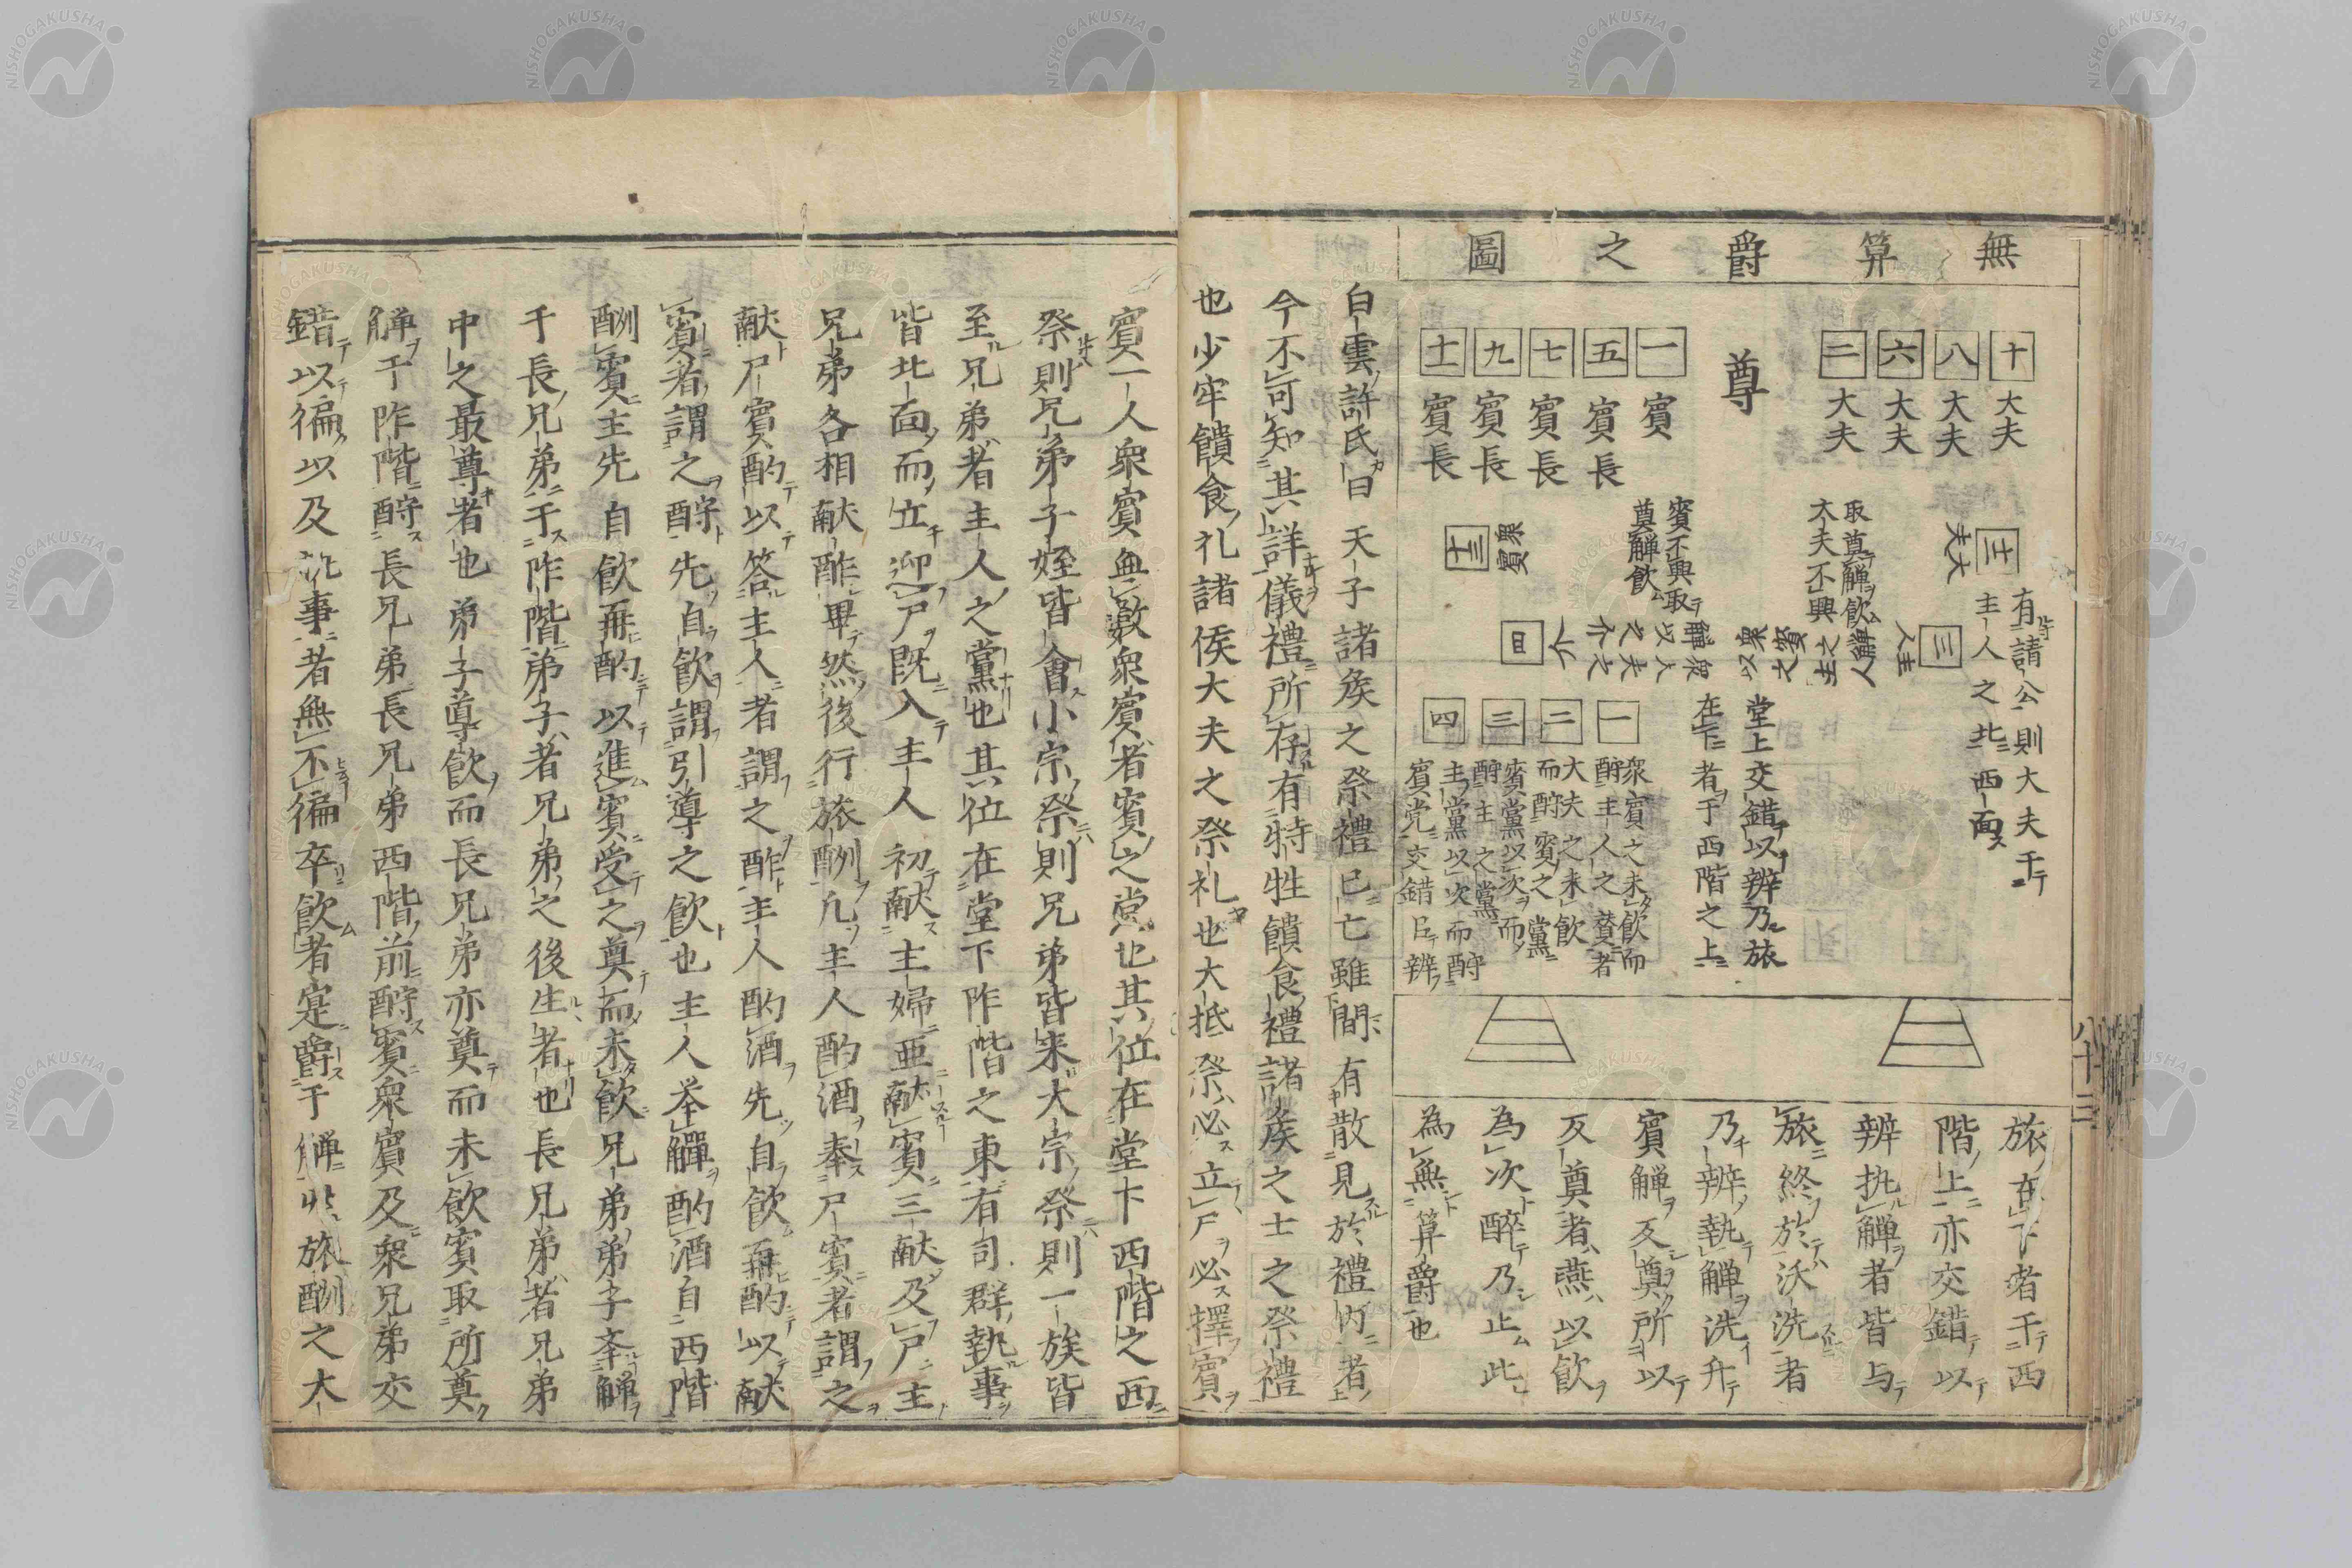 無算爵之圖
十 大夫
八 大夫
六 大夫
二 大夫
尊
一 賓
五 賓長
七 賓長
九 賓長
十一 賓長
十二 大夫
有請公則大夫于
主人之北西面
取奠觶飲
大夫不興
賓不興取
奠觶飲
衆賓
十三
三 主人
四 介
堂上交錯以辨乃旅
在下者于西階之上
一 衆賓之未飲而
酧主人之賛者
二 大夫之未飲
而酧賓之黨
三 賓黨以次而
酧主之黨
四 主黨以次而酧
賓党交錯㠯辨
旅在下者于西
階上亦交錯以
辨执觶者皆与
旅終於沃洗者
乃辨執觶洗升
賓觶反奠所以
反奠者燕以飲
為次醉乃止此
為無算爵也
白雲許氏曰天子諸矦之祭禮已亡雖間有散見於禮内者
今不可知其詳儀禮所存有特牲饋食禮諸矦之士之祭禮
也少牢饋食礼諸侯大夫之祭礼也大抵祭必立尸必擇賓
八十三
賓一人衆賓無數衆賓者賓之党也其位在堂下西階之西
祭則兄弟子姪皆會小宗祭則兄弟皆来大宗祭則一族皆
至兄弟者主人之黨也其位在堂下阼階之東有司群執事
皆北面而立迎尸既入主人初献主婦亜献賓三献及尸主
兄弟各相献酢畢然後行旅酬凡主人酌酒奉尸賓者謂之
献尸賓酌以答主人者謂之酢主人酌酒先自飲再酌以献
賓者謂之酧先自飲謂引導之飲也主人举觶酌酒自西階
酬賓主先自飲再酌以進賓受之奠而未飲兄弟弟子举觶
于長兄弟于阼階弟子者兄弟之後生者也長兄弟者兄弟
中之最尊者也弟子導飲而長兄弟亦奠而未飲賓取所奠
觶于阼階酧長兄弟長兄弟西階前酧賓衆賓及衆兄弟交
錯以徧以及执事者無不徧卒飲者寔爵于觶此旅酬之大